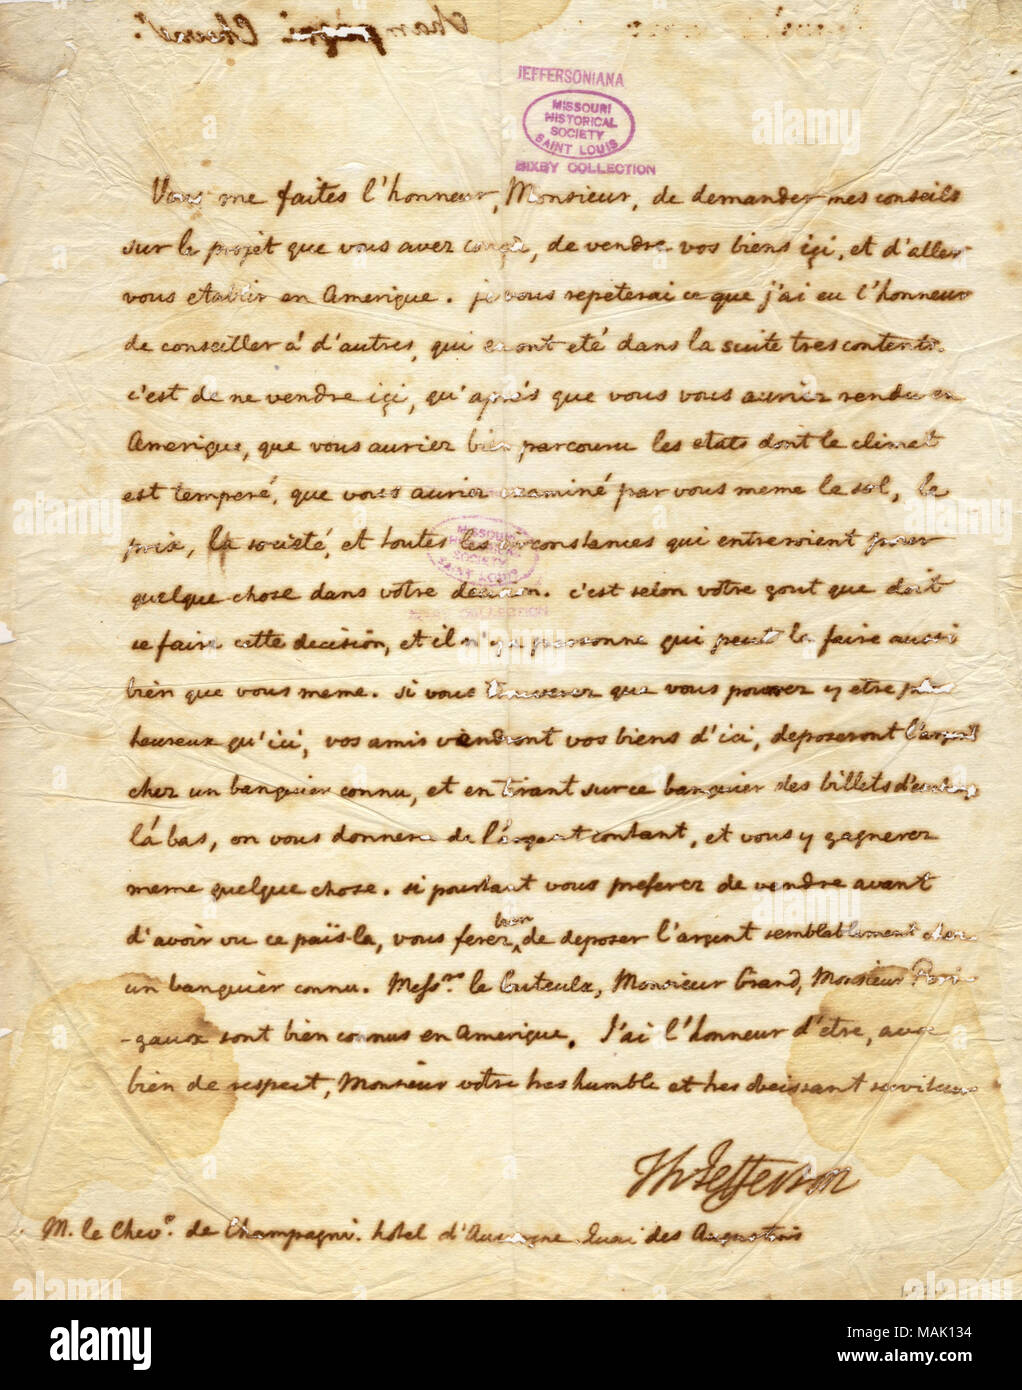 Champagni Cheval.
JEFFERSONIANA
MISSOURI
HISTORICAL
SOCIETY
SAINT LOUIS
BIXBY COLLECTION
Vous me faites l'honneur, Monsieur, de demander mes conseils
sur le projet que vous avez conçu, de vendre vos biens içi, et d'aller
vous etablir en Amerique. je vous repeterai ce que j'ai eu l'honneur
de conseiller á d'autres, qui en ont eté dans la suite tres contents.
c'est de ne vendre içi, qu'aprés que vous vous auriez rendu en
Amerique, que vous auriez bien parcouru les etats dont le climat
est temperé, que vous auriez examiné par vous meme le sol, le
prix, la societé, et toutes les circonstances qui entreroient pour
quelque chose dans votre decision. c'est selon votre gout que doit
se faire cette decision, et il n'y a personne qui peut la faire aussi
bien que vous meme. si vous trouverez que vous pourrez y etre plus
heureux qu'ici, vos amis vendront vos biens d'ici, deposeront l'argent
chez un banquier connu, et en tirant sur ce banquier des billets d'echange
lá bas, on vous donnera de l'argent contant, et vous y gagnerez
meme quelque chose. si pourtant vous preferez de vendre avant
d'avoir vu ce païs-la, vous ferez bien de deposer l'argent semblablement chez
un banquier connu. Messrs. le Couteulx, Monsieur Grand, Monsieur Perri-
-gaux sont bien connus en Amerique. J'ai l'honneur d'etre, avec
bien de respect, Monsieur votre tres humble et tres obeissant serviteur
Th Jefferson
M. le Chevr. de Champagni. hotel d'Auvergne Quai des Augustins
MISSOURI
HISTORICAL
SOCIETY
SAINT LOUIS
BIXBY COLLECTION
alamy
Image ID: MAK134
www.alamy.com